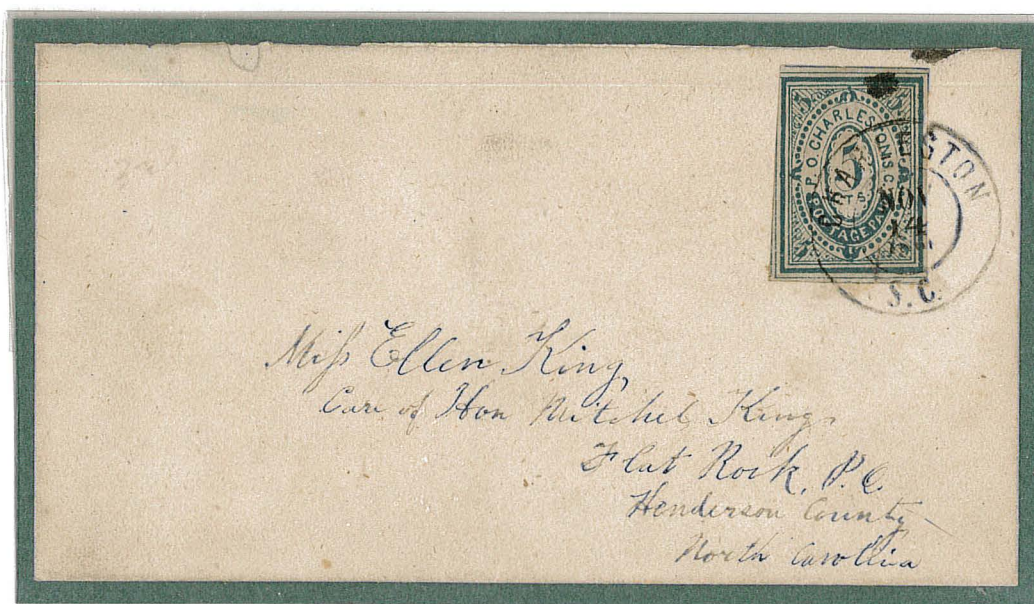 P.O. CHARLESTON S.C.
5
CTS
POSTAGE PAID
CHARLESTON
NOV
14
S.C.
Miss Ellen King,
Care of Hon Mitchel King,
Flat Rock, P.O.
Henderson County
North Carolina